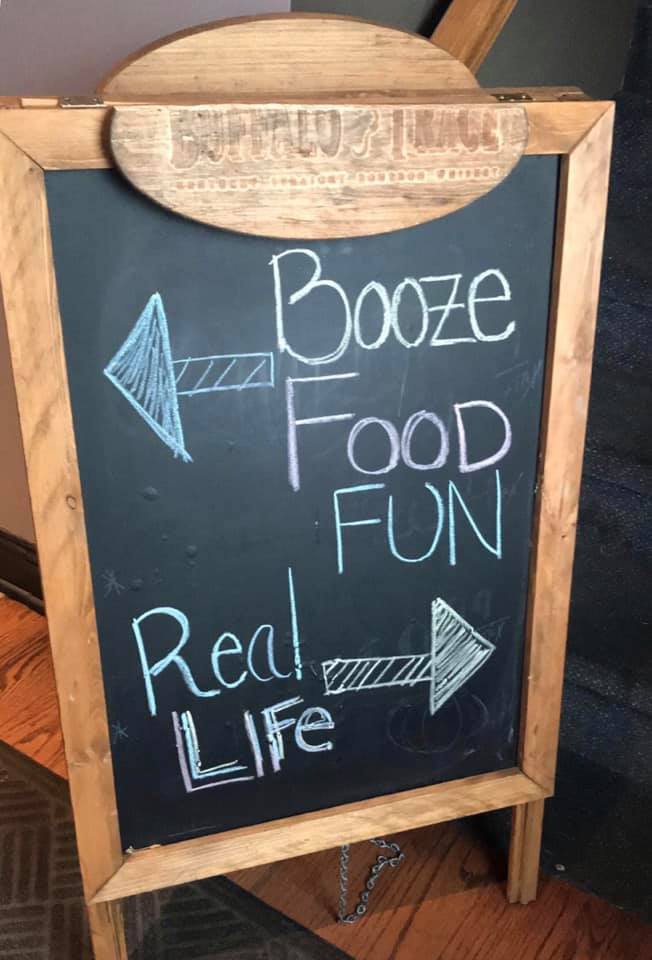 BUFFALO TRACE
Booze
FOOD
FUN
Real
LIFe